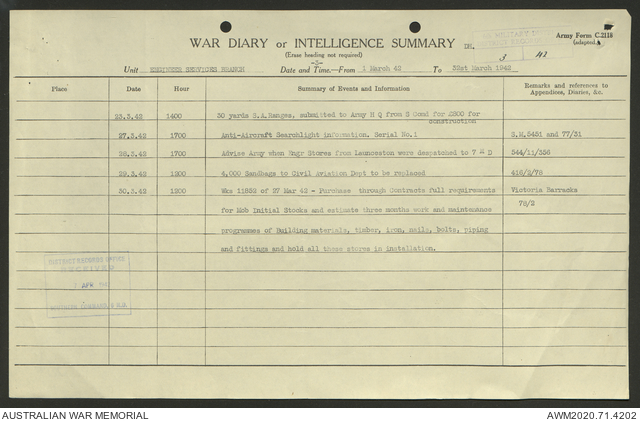 WAR DIARY or INTELLIGENCE SUMMARY
Army Form C.2118
(adapted)
(Erase heading not required)
-2-
3 42
Unit ENGINEER SERVICES BRANCH Date and Time.—From 1 March 42 To 31st March 1942
Place Date Hour Summary of Events and Information Remarks and references to Appendices, Diaries, &c.
23.3.42 1400 30 yards S.A.Ranges, submitted to Army H Q from S Comd for £800 for
construction
27.3.42 1700 Anti-Aircraft Searchlight information. Serial No.1 S.M.5451 and 77/31
28.3.42 1700 Advise Army when Engr Stores from Launceston were despatched to 7 M D 544/11/356
29.3.42 1200 4,000 Sandbags to Civil Aviation Dept to be replaced 416/2/78
30.3.42 1200 Wks 11852 of 27 Mar 42 - Purchase through Contracts full requirements Victoria Barracks
for Mob Initial Stocks and estimate three months work and maintenance 78/2
programmes of Building materials, timber, iron, nails, bolts, piping
and fittings and hold all these stores in installation.
RECEIVED
APR
AUSTRALIAN WAR MEMORIAL AWM2020.71.4202